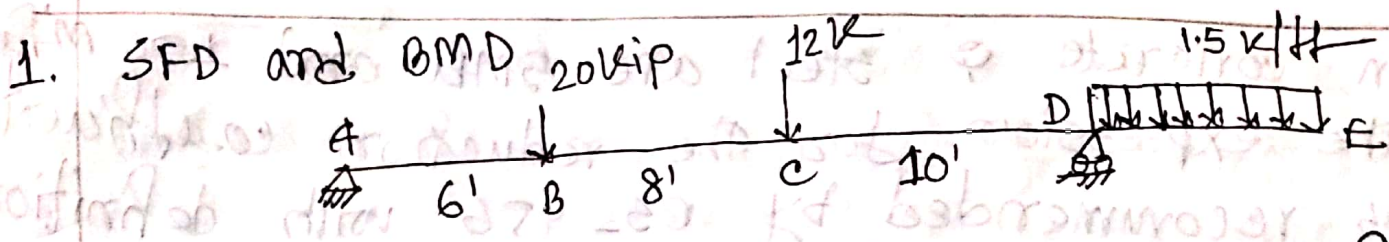 1. SFD and BMD 20Kip 12K 1.5 K/ft
A 6' B 8' C 10' D E